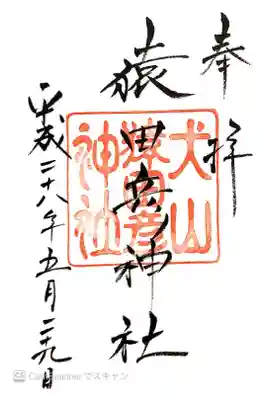 奉拝
猿田彦神社
犬山
猿田彦
神社
平成二十八年五月二十九日
CamScanner でスキャン